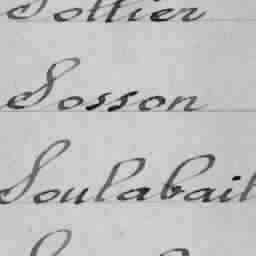 Sottier
Sosson
Soulabail